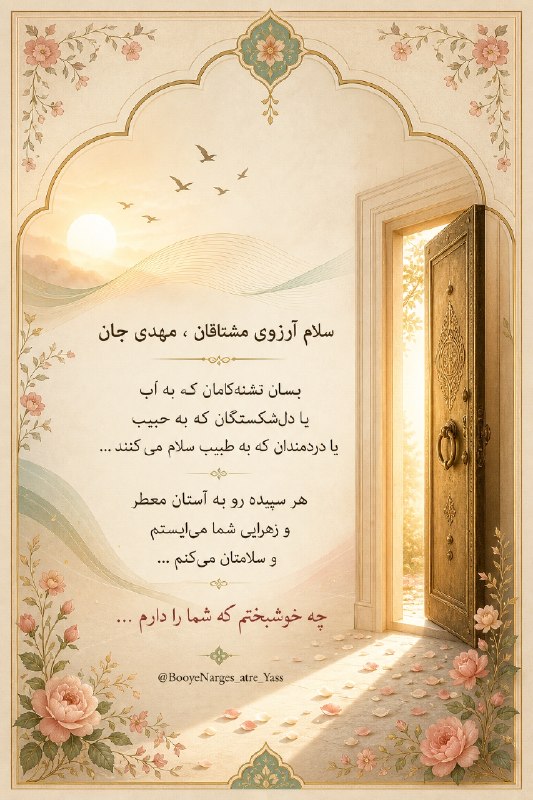 سلام آرزوی مشتاقان ، مهدی جان
بسان تشنه‌کامان که به آب
یا دل‌شکستگان که به حبیب
یا دردمندان که به طبیب سلام می‌کنند ...
هر سپیده رو به آستان معطر
و زهرایی شما می‌ایستم
و سلامتان می‌کنم ...
چه خوشبختم که شما را دارم ...
@BooyeNarges_atre_Yass